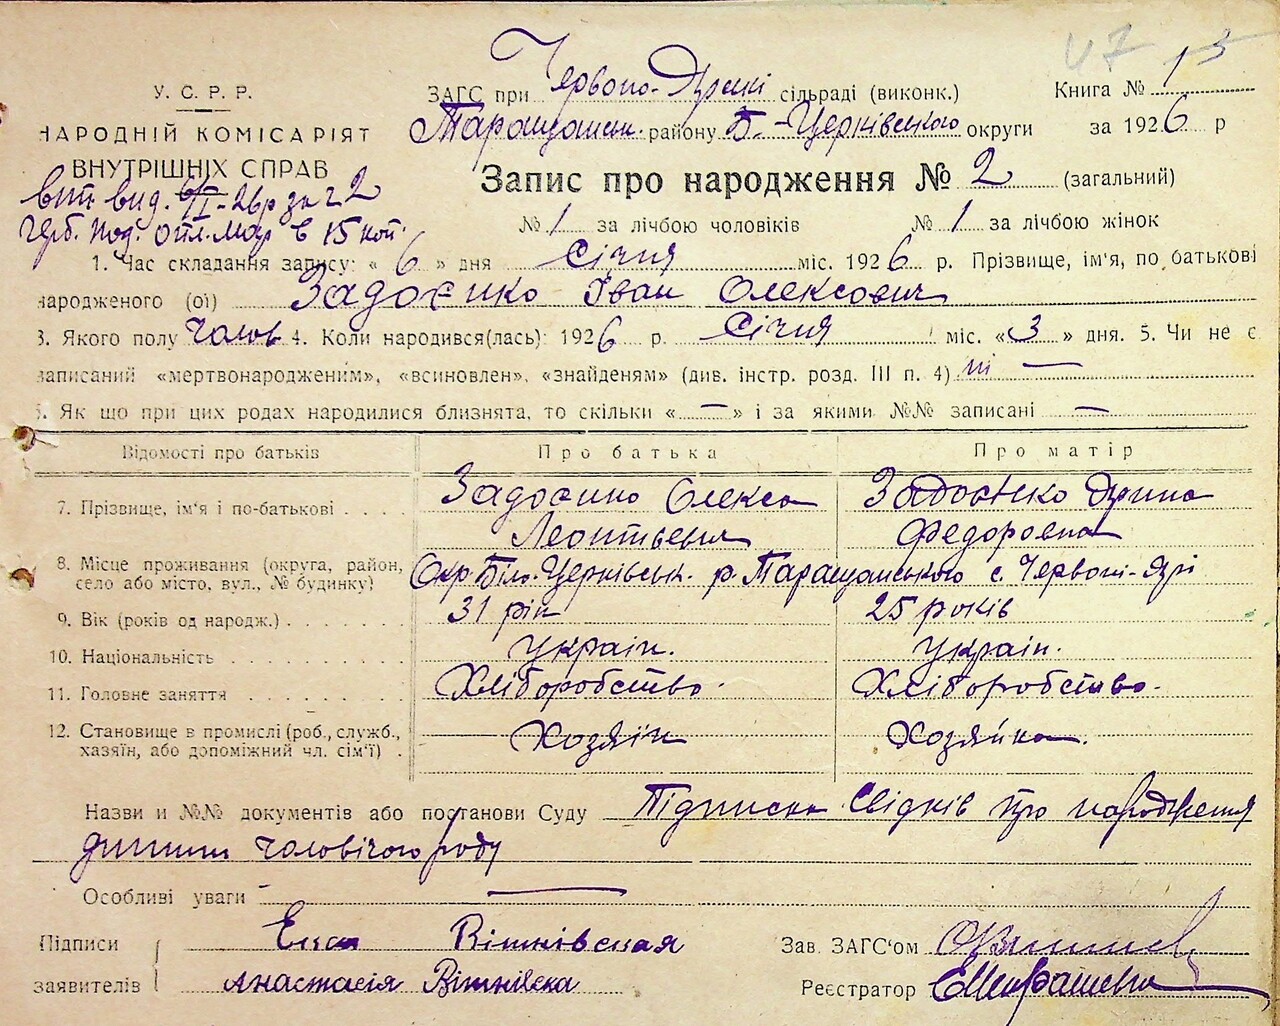 У. С. Р. Р.
НАРОДНІЙ КОМІСАРІЯТ
ВНУТРІШНІХ СПРАВ
вит. вид. 6/I-26р за ч 2
герб. под. опл. мар в 15 коп.
ЗАГС при Червоно- сільраді (виконк.)
Таращанськ. району Б.-Церківського округи
Книга № 1
за 1926 р
Запис про народження № 2 (загальний)
№ 1 за лічбою чоловіків № 1 за лічбою жінок
1. Час складання запису: « 6 » дня Січня міс. 1926 р. Прізвище, ім'я, по батькові
народженого (ої) Задоєнко Іван Олексович
3. Якого полу чолов 4. Коли народився(лась): 1926 р. Січня міс. «3» дня. 5. Чи не є
записаний «мертвонародженим», «всиновлен», «знайденям» (див. інстр. розд. III п. 4) ні —
6. Як що при цих родах народилися близнята, то скільки « — » і за якими №№ записані —
Відомості про батьків Про батька Про матір
7. Прізвище, ім'я і по-батькові . . . . Задоєнко Олекса Задоєнко
Леонтьевич Федоровна
8. Місце проживання (округа, район, село або місто, вул., № будинку) Окр. Біло-Церківськ. р. Таращанського с. Червоні-Ярі
9. Вік (років од народж.) . . . . . . . 31 рік 25 років
10. Національність . . . . . . . . . . Україн. Україн.
11. Головне заняття . . . . . . . . . Хліборобство. Хліборобство.
12. Становище в промислі (роб., служб., хазяїн, або допоміжний чл. сім'ї) . Хозяїн Хозяйка.
Назви и №№ документів або постанови Суду Підписка свідків про народження
дитини чоловічого роду
Особливі уваги —
Підписи Вішнівская
заявителів Анастасія Вішнівска
Зав. ЗАГС'ом
Реєстратор